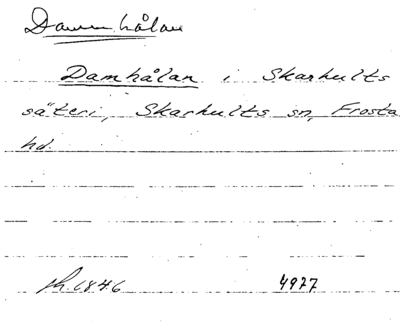 Dammhålan
Damhålan i Skarhults
säteri, Skarhults sn, Frosta
hd.
1846 4927